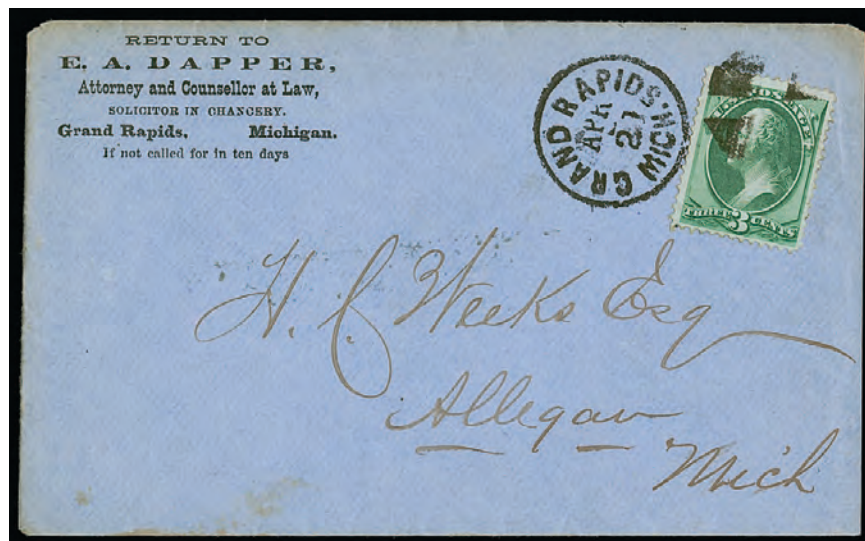 RETURN TO
E. A. DAPPER,
Attorney and Counsellor at Law,
SOLICITOR IN CHANCERY.
Grand Rapids, Michigan.
If not called for in ten days
GRAND RAPIDS, MICH.
APR
21
THREE 3 CENTS
H. C. Weeks Esq
Allegan
Mich